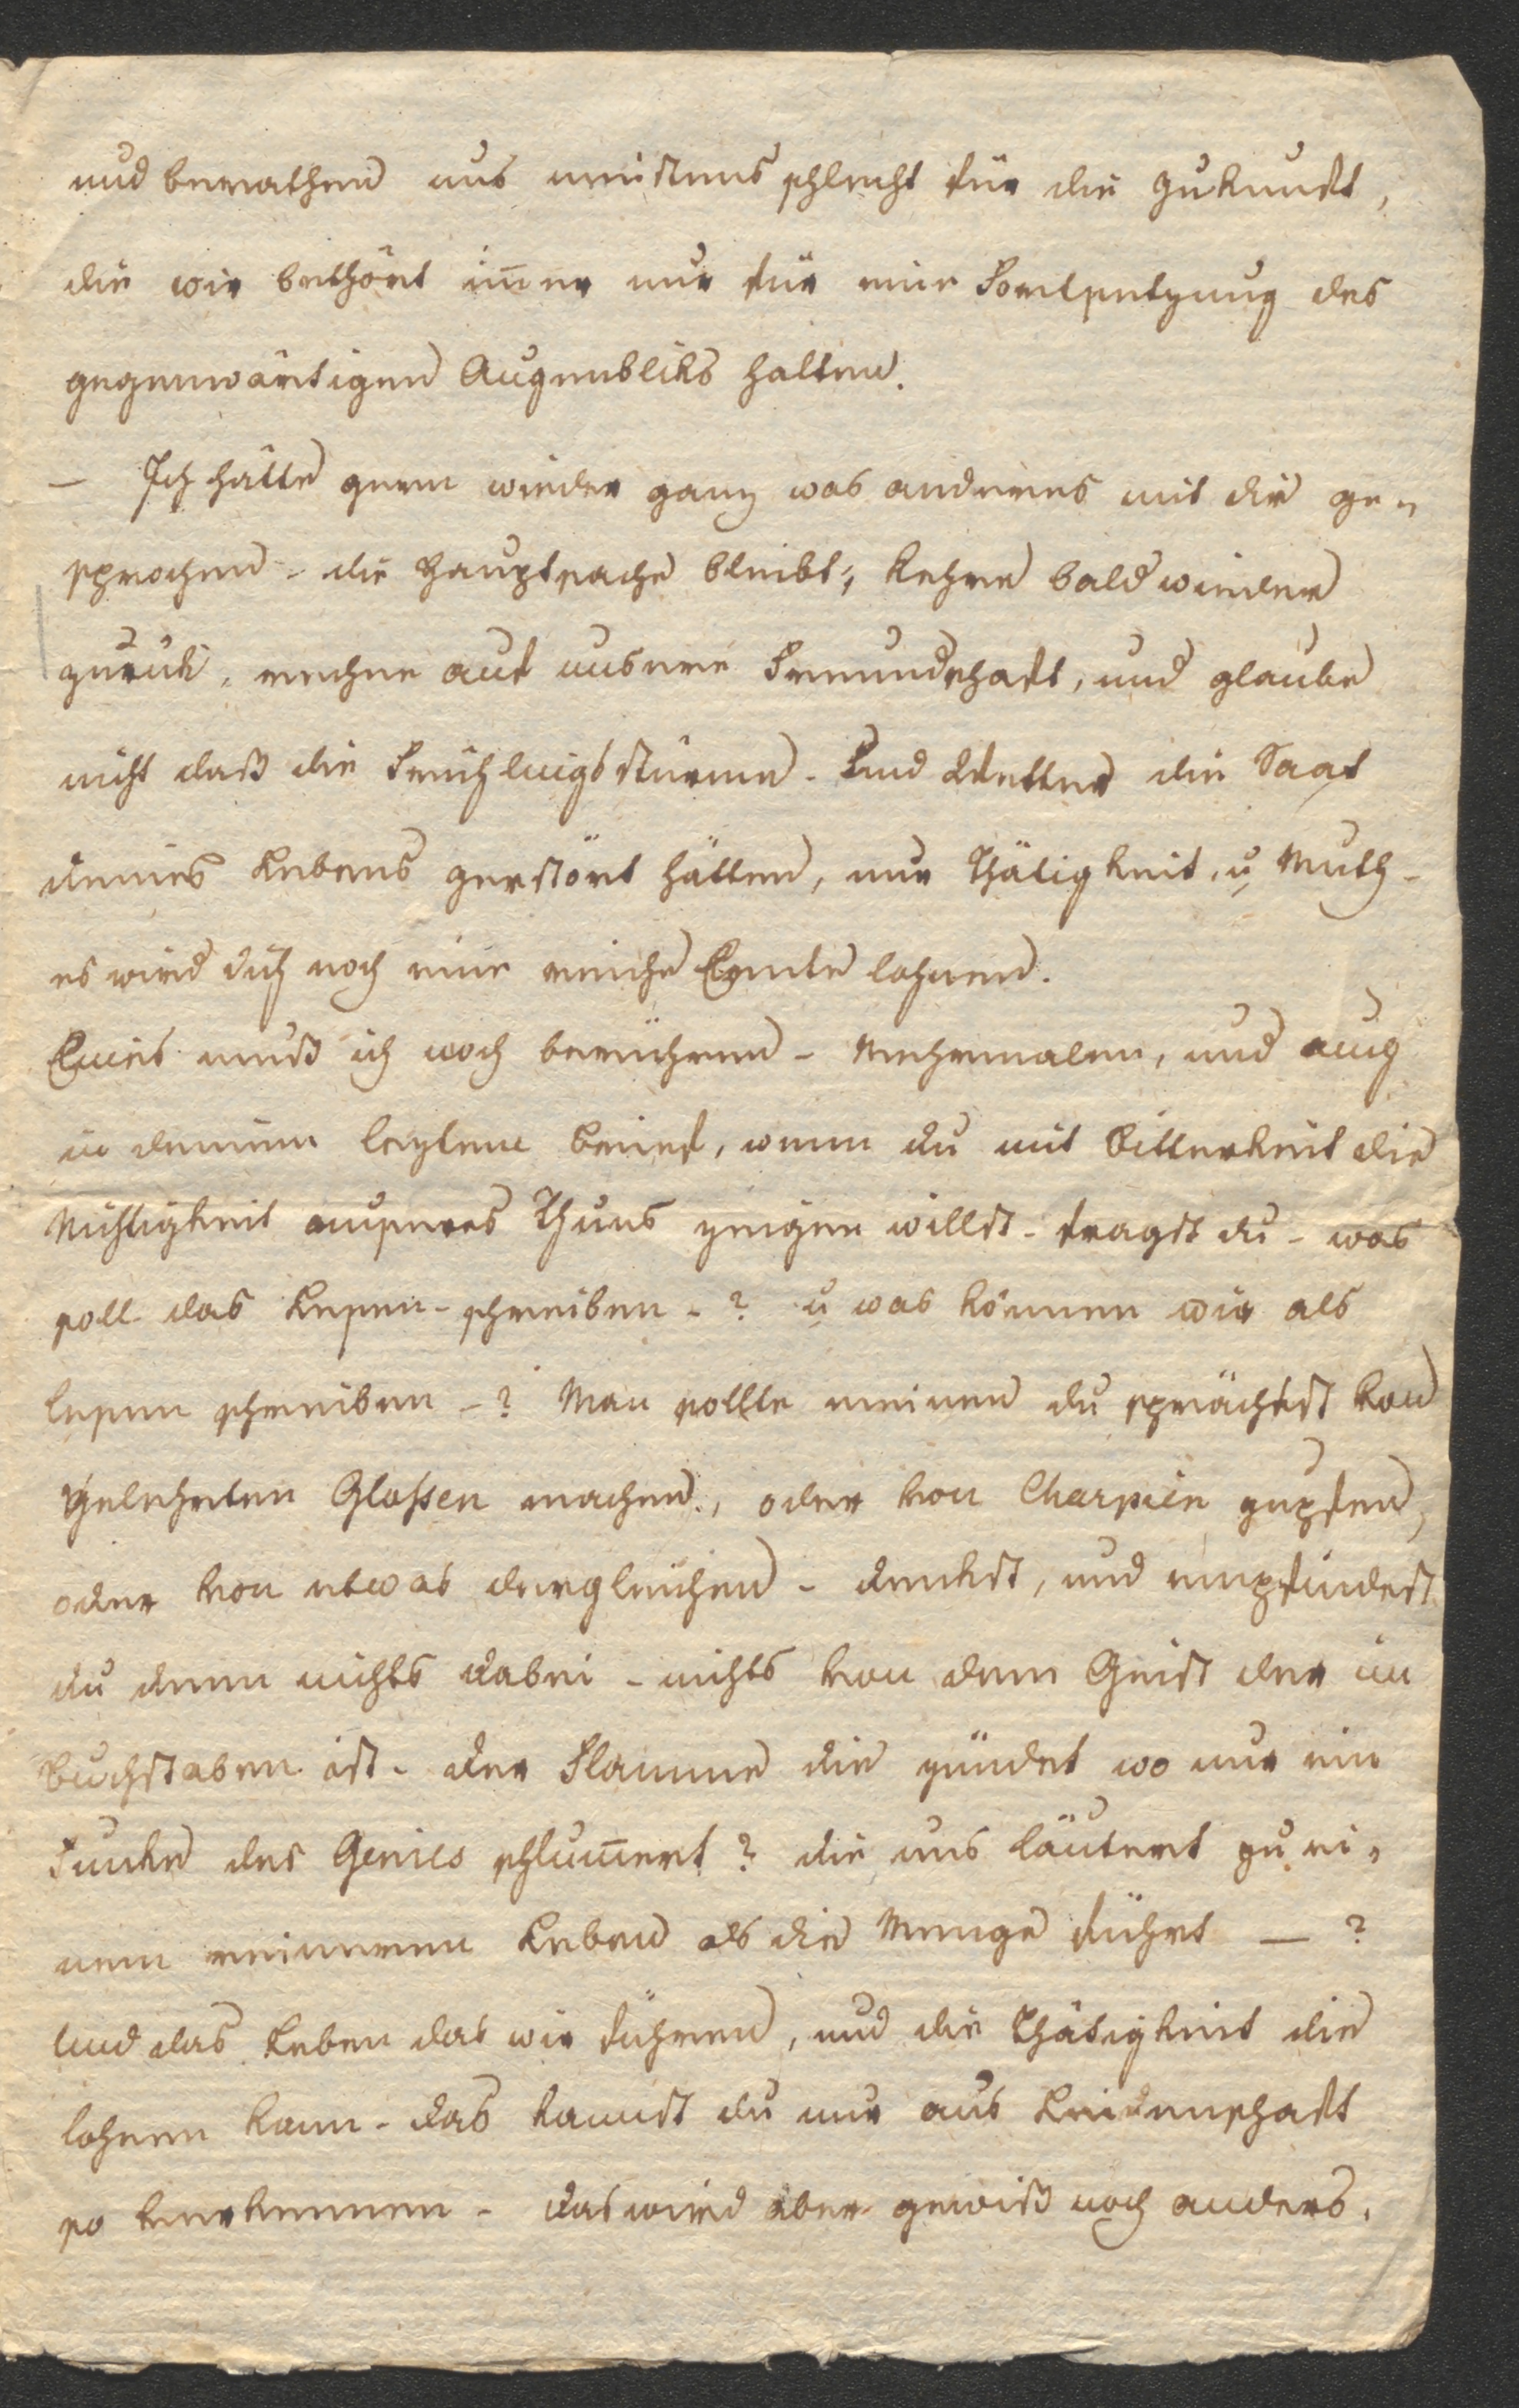 und berathen uns meistens schlecht für die Zukunft,
die wir bethört im̅er nur für eine Fortsetzung des
gegenwärtigen Augenbliks halten.
— Ich hätte gern wieder ganz was anderes mit dir ge-
sprochen - die Hauptsache bleibt, kehre bald wieder
zurük, rechne auf unsere Freundschaft, und glaube
nicht daß die Frühlingsstürme - und Wetter die Saat
deines Lebens zerstört hätten, nur Thätigkeit, u Muth -
es wird dich noch eine reiche Ernte lohnen.
Eines muß ich noch berühren - Mehrmalen, und auch
in deinem leztene Brief, wenn du mit Bitterkeit die
Nichtigkeit unseres Thuns zeigen willst - fragst du - was
soll das Lesen - schreiben - ? u was können wir als
lesen schreiben - ? Man sollte meinen du sprächest von
gelehrten Glossen machen, oder von Charpien zupfen,
oder von etwas dergleichen - denkst, und empfindest
du denn nichts dabei - nichts von dem Geist der im
Buchstaben ist - der Flamme die zündet wo nur ein
Funke des Genies schlum̅ert? die uns läutert zu ei-
nem reineren Leben als die Menge führt — ?
Und das Leben das wir führen, und die Thätigkeit die
lohnen kann - das kannst du nur aus Leidenschaft
so verkennen - das wird aber gewiß noch anders.